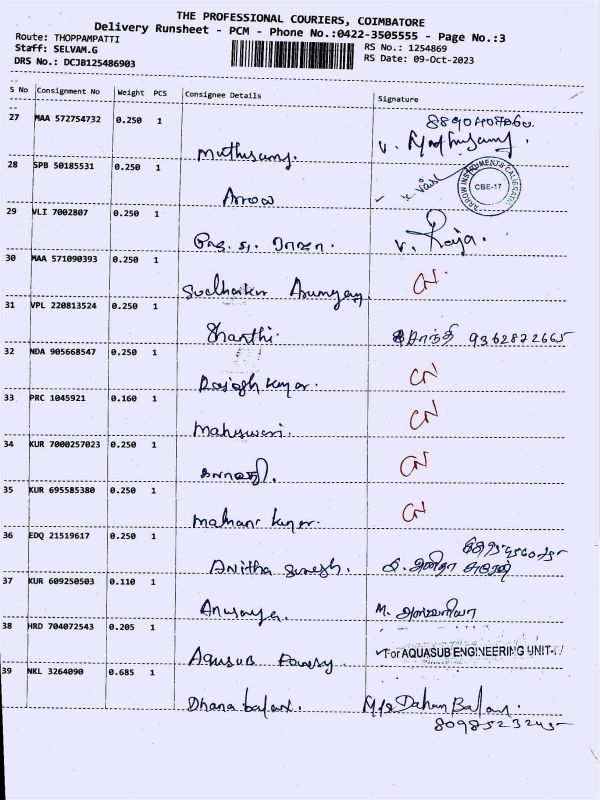 THE PROFESSIONAL COURIERS, COIMBATORE
Delivery Runsheet - PCM - Phone No.:0422-3505555 - Page No.:3
Route: THOPPAMPATTI
RS No.: 1254869
Staff: SELVAM.G
RS Date: 09-Oct-2023
DRS No.: DCJB125486903
S No Consignment No Weight PCS Consignee Details Signature
27 MAA 572754732 0.250 1
Muthusamy. V.
28 SPB 50185531 0.250 1
ARROW INSTRUMENTS CALIBRATIC
CBE-17
Arrow
29 VLI 7002807 0.250 1
V. Raja.
30 MAA 571090393 0.250 1
Sudhakar CN
31 VPL 220813524 0.250 1
Shanthi. சாந்தி 9362872665
32 NDA 905668547 0.250 1
CN
33 PRC 1045921 0.160 1
Maheswari. CN
34 KUR 7000257023 0.250 1
CN
35 KUR 695585380 0.250 1
CN
36 EDQ 21519617 0.250 1
Anitha Suresh. அனிதா சுரேஷ்
37 KUR 609250503 0.110 1
Anusuya. M.
38 HRD 704072543 0.205 1
Aquasub For AQUASUB ENGINEERING UNIT-
39 NKL 3264090 0.685 1
Dhana balan. Balan.
8098523245